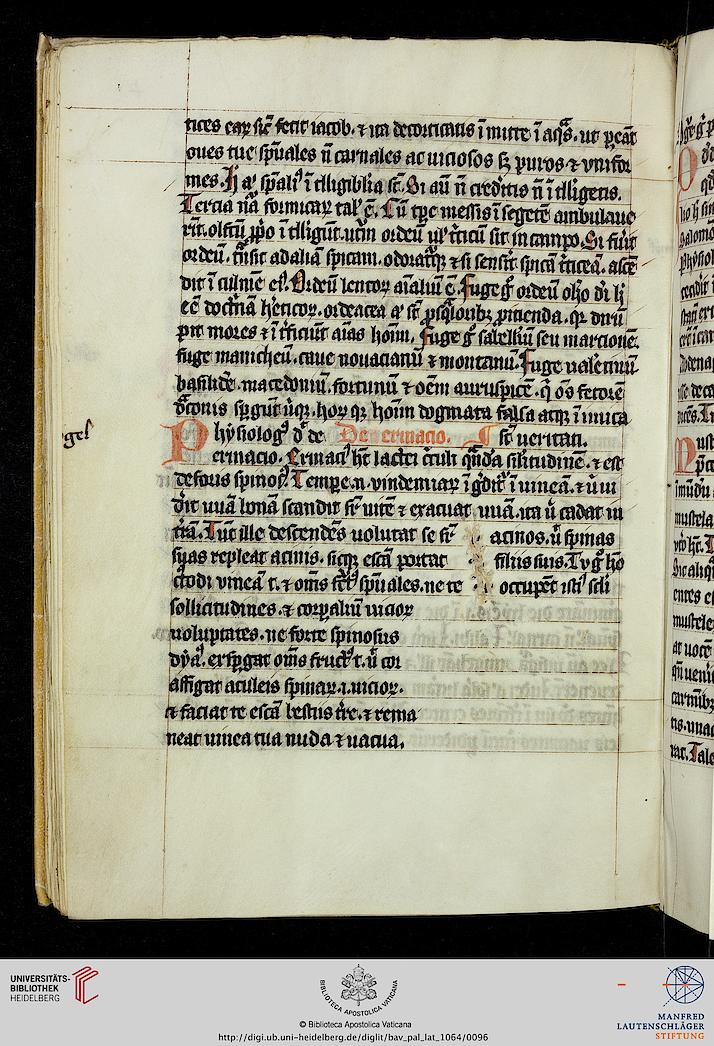 tices eaꝝ sic̄ fecit iacob. ⁊ ita decorticatis ī mitte ī aq̄s. ut ꝑcāt
oues tue sp̄uales n̄ carnales ac uiciosos sꝫ puros ⁊ unifor
mes. H aʼ sp̄aliʼ ītlligibilia st̄. Si aū n̄ creditis n̄ ītlligetis.
Tercia nā formicaꝝ talʼ ē. Cū tꝑe messis ī segete ambulaue
rīt. olfcū ꝓp̄o ītlligūt. utm̄ ordeū ul̓ tͥticū sit in campo. Si fuīt
ordeū. tn̄sit ad aliā spicam. odoratq̄ꝫ ⁊ si senserit spicā tͥticeā. ascē
dit ī culmē eiʼ. Ordeū lentoꝝ aīaliū ē. Fuge gͦ ordeū
eē doctͥnā hͤticoꝝ. ordeacea aʼ st̄
pit mores ⁊ īt̄ficiūt aīas hoīm. fuge gͦ sabelliū seu marcionē.
fuge manicheū. caue nouacianū ⁊ montanū. Fuge ualētinū
basilidē. macedoniū. fortunū ⁊ oēm auruspicē. qͥ ōs fetorē
dͣconis spgūt ūiqꝫ. hoꝝ qꝫ hoīm dogmata falsa atqꝫ īimica
Physiologʼ dͫ de De ermacio. st̄ ueritati.
gesʼ
ermacio. Ermaciʼ ht̄ lactei cͥculi qͣndā similitudinē. ⁊ est
deforis spinosʼ. Tempe.n. vindemiaꝝ īgͣditʼ ī uineā. ⁊ ū ui
dit uuā bonā scandit sr̄ uitē ⁊ exacuat uuā. ita ū cadat in
tr̄ā. Tūc ille descendēs uolutat se sr̄ acinos. ū spinas
suas repleat acinis. sicqꝫ escā portat filiis suis. Tu gͦ hō
cͮtodi uineā t. ⁊ om̄s fcͮtʼ sp̄uales. ne te occupēt istiʼ scl̄i
sollicitudines. ⁊ corꝑaliū uicioꝝ
uoluptates. ne forte spinosus
dyaʼ. exspgat om̄s fructʼ t. ū cor
affigat aculeis spinaꝝ .i. uicioꝝ.
⁊ faciat te escā bestiis tr̄e. ⁊ rema
neat uinea tua nuda ⁊ uacua.
UNIVERSITÄTS-
BIBLIOTHEK
HEIDELBERG
BIBLIOTECA APOSTOLICA VATICANA
© Biblioteca Apostolica Vaticana
http://digi.ub.uni-heidelberg.de/diglit/bav_pal_lat_1064/0096
MANFRED
LAUTENSCHLÄGER
STIFTUNG